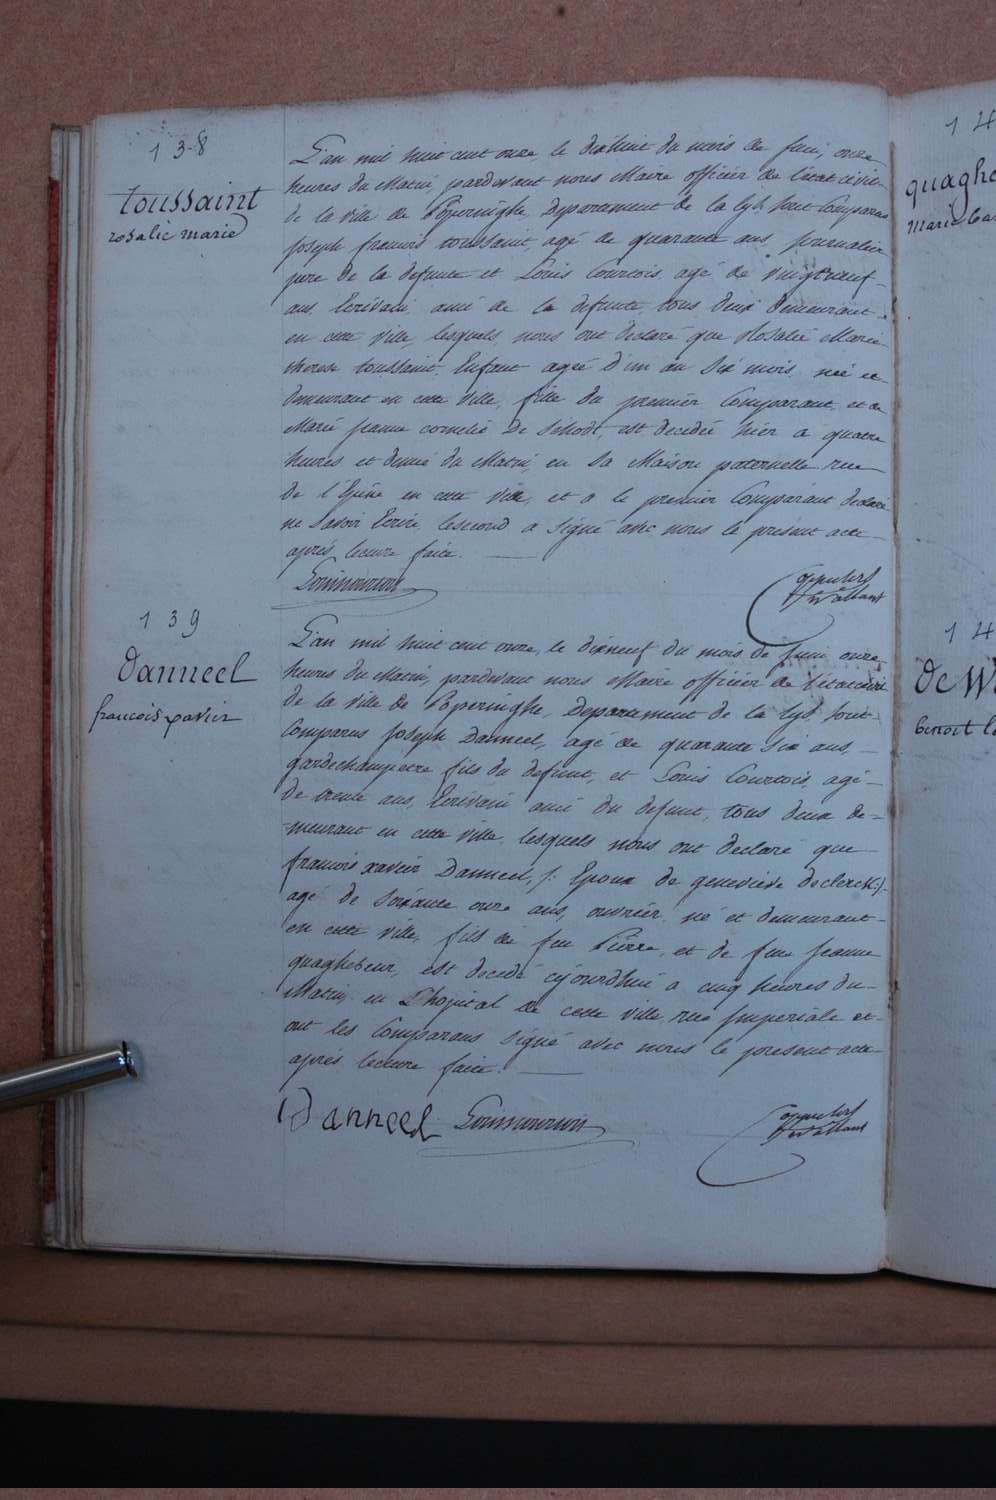 138
toussaint
rosalie marie
L'an mil huit cent onze, le dixhuit du mois de Juin, onze
heures du Matin, pardevant nous Maire officier de l'état civil
de la ville de Poperinghe, Departement de la Lys sont Comparus
Joseph francois toussaint, agé de quarante ans, journalier
pere de la defunte et Louis Courtois, agé de vingtneuf
ans, Ecrivain, ami de la defunte, tous deux demeurant
en cette ville, lesquels nous ont declaré que Rosalie Marie
therese toussaint, Enfant agée d'un an six mois, née et
demeurant en cette ville, fille du premier Comparant, et de
Marie jeanne cornelie De Schodt, est decedée hier a quatre
heures et demie du Matin, en sa Maison paternelle rue
de l'Epine en cette ville, et a le premier Comparant declaré
ne savoir Ecrire, le second a signé avec nous le present acte
aprés lecture faite.
139
Danneel
francois xavier
L'an mil huit cent onze, le dixneuf du mois de Juin onze
heures du Matin, pardevant nous Maire officier de l'etat civil
de la ville de Poperinghe, Departement de la Lys sont
Comparus Joseph Danneel, agé de quarante six ans,
gardechampetre fils du defunt, et Louis Courtois, agé
de trente ans, Ecrivain ami du defunt, tous deux de=
=meurant en cette ville, lesquels nous ont declaré que
francois xavier Danneel, /: Epoux de genevieve declerck:/
agé de soixante onze ans, ouvrier, né et demeurant
en cette ville, fils de feu Pierre, et de feue Jeanne
quaghebeur, est decedé cejourdhui a cinq heures du
Matin, en l'hopital de cette ville, rue Imperiale et
ont les Comparans signé avec nous le present acte
aprés lecture faite.
Danneel
14
quaghe
marie
14
De W
benoit